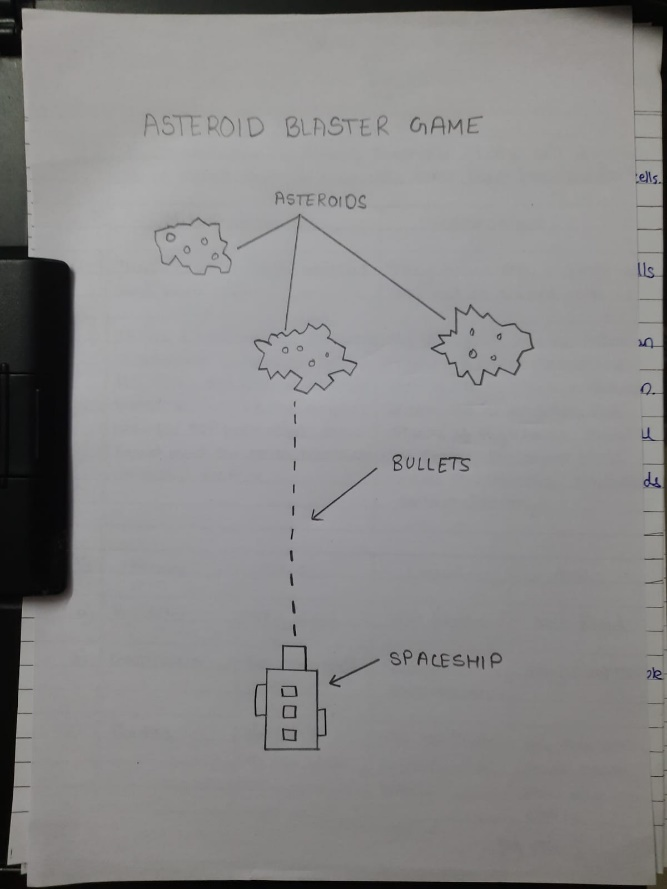 ASTEROID BLASTER GAME
ASTEROIDS
BULLETS
SPACESHIP
ells.
lls
ds